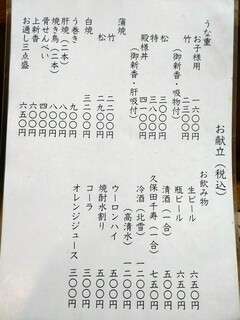 お献立（税込）
うな重
お子様用 一六〇〇円
竹 二三〇〇円
（御新香・吸物付）
松 三一〇〇円
特
殿様丼 四一〇〇円
（御新香・肝吸付）
蒲焼
竹 二二〇〇円
松 二九〇〇円
白焼 三二〇〇円
う巻き 九〇〇円
肝焼（二本） 八〇〇円
焼き鳥（二本）
骨せんべい 四〇〇円
上新香 五〇〇円
お通し三点盛 六五〇円
お飲み物
生ビール 六五〇円
瓶ビール 六五〇円
清酒（一合） 五五〇円
久保田千寿（一合） 七五〇円
冷酒（北雪）
（高清水）
ウーロンハイ 五〇〇円
焼酎水割り 五〇〇円
コーラ 三〇〇円
オレンジジュース 三〇〇円